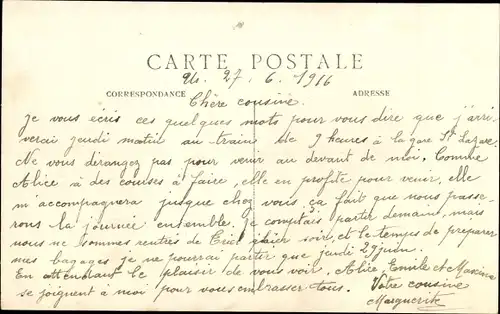 CARTE POSTALE
27. 6. 1916
CORRESPONDANCE
ADRESSE
Chère cousine.
Je vous écris ces quelques mots pour vous dire que j'arri-
verai jeudi matin au train de 9 heures à la gare St Lazare.
Ne vous dérangez pas pour venir au devant de moi. Comme
Alice a des courses à faire, elle en profite pour venir, elle
m'accompagnera jusque chez vous, ça fait que nous passe-
rons la journée ensemble. Je comptais partir demain, mais
nous ne sommes rentrés de Creil qu'hier soir, et le temps de préparer
mes bagages je ne pourrai partir que jeudi 29 juin.
En attendant le plaisir de vous voir. Alice, Emile et Maxime
se joignent à moi pour vous embrasser tous. Votre cousine
Marguerite